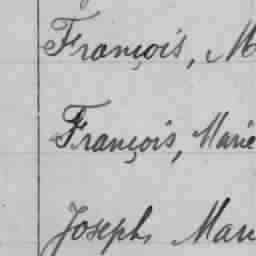 François, M
François, Marie
Joseph, Mari